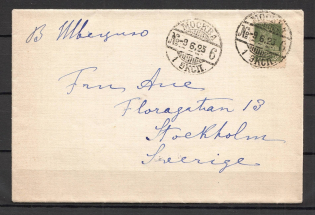 В Швецию
МОСКВА
-9 6 23
6
1 ЭКСП.
МОСКВА
1 ЭКСП.
Fru Ane
Floragatan 13
Stockholm
Sverige